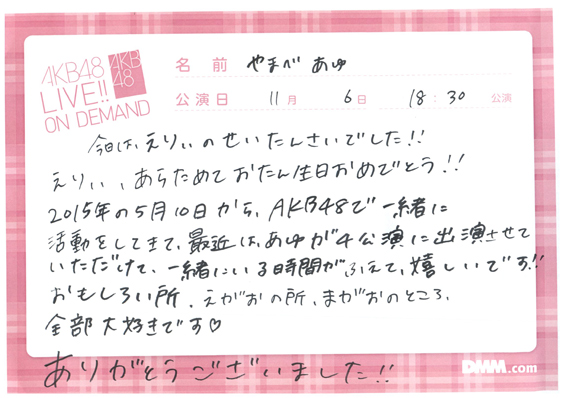 AKB48
LIVE!!
ON DEMAND
AKB
48
名前 やまべ あゆ
公演日 11月 6日 18:30 公演
今日は、えりぃのせいたんさいでした!!
えりぃ、あらためておたん生日おめでとう!!
2015年の5月10日から、AKB48で一緒に
活動をしてきて、最近は、あゆが4公演に出演させて
いただけて、一緒にいる時間がふえて、嬉しいです!!
おもしろい所、えがおの所、まがおのところ、
全部大好きです♡
ありがとうございました!!
DMM.com